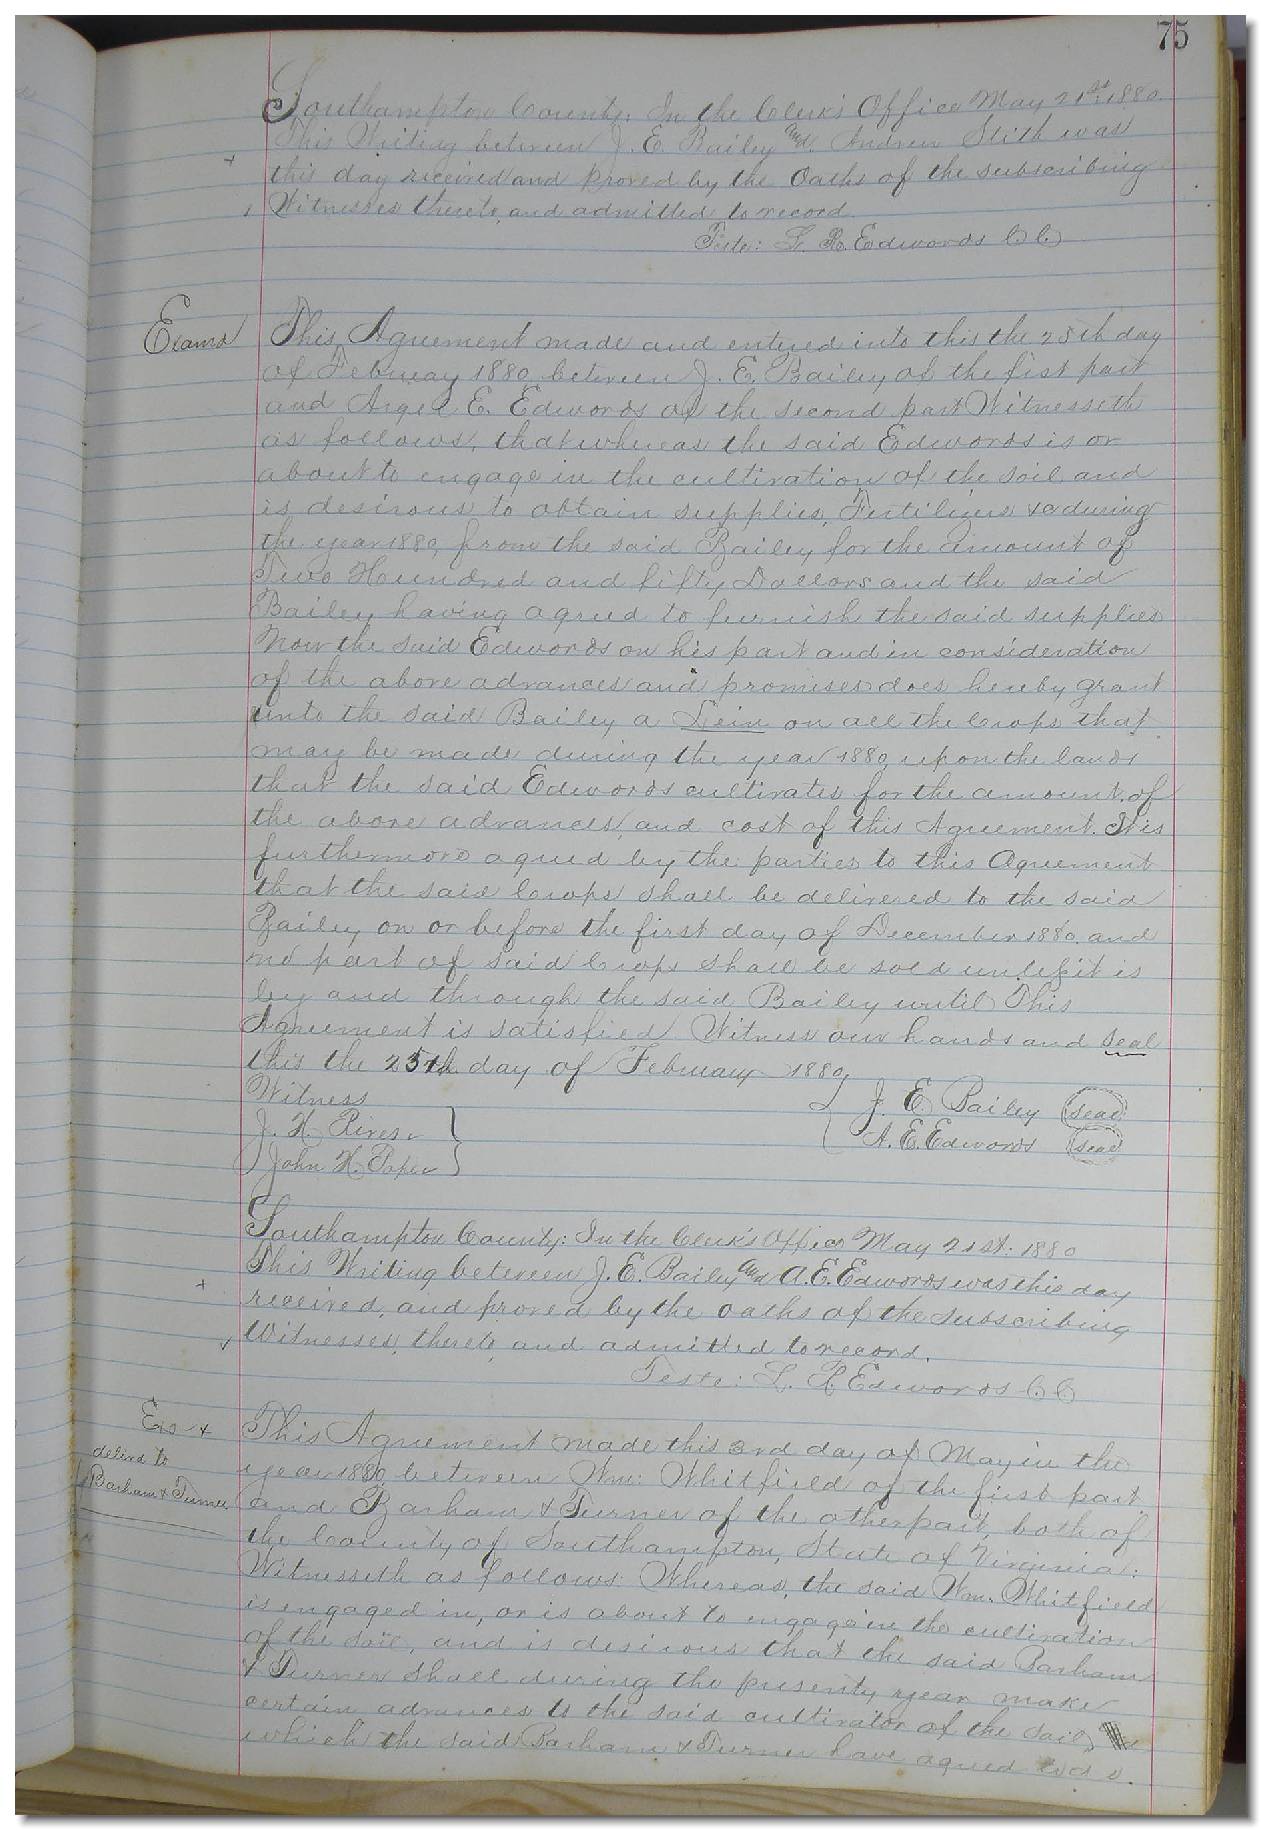 75
Southampton County: In the Clerk's Office May 21st 1880.
This Writing between J. E. Bailey and Andrew Stith was
this day received and proved by the Oaths of the subscribing
Witnesses thereto, and admitted to record.
Teste: L. R. Edwards C C
Examd
This Agreement made and entered into this the 25th day
of Febuary 1880 between J. E. Bailey of the fist part
and E. Edwards of the second part Witnesseth
as follows, that whereas the said Edwards is or
about to engage in the cultivation of the soil and
is desirous to obtain supplies, Fertilizers &c during
the year 1880, from the said Bailey for the amount of
Two Hundred and fifty Dollars and the said
Bailey having agreed to furnish the said supplies
Now the said Edwards on his part and in consideration
of the above advances and promises does hereby grant
unto the said Bailey a Lein on all the Crops that
may be made during the year 1880, upon the lands
that the said Edwards cultivates for the amount of
the above advances, and cost of this Agreement. It is
furthermore agreed by the parties to this Agreement
that the said Crops shall be delivered to the said
Bailey on or before the first day of December 1880. and
no part of said Crops shall be sold unless it is
by and through the said Bailey until This
Agreement is satisfied Witness our hands and seal
this the 25th day of February 1880,
Witness
J. E. Bailey (seal)
J. H. Rives
A. E. Edwards (seal)
John H. Pope
Southampton County: In the Clerk's Office May 21st. 1880
This Writing between J. E. Bailey and A. E. Edwards was this day
received, and proved by the oaths of the subscribing
Witnesses, thereto, and admitted to record.
Teste: L. R Edwards C C
Exd +
delivd to
Barham & Turner
This Agreement made this 3rd day of May in the
year 1880 between Wm: Whitfield of the first part
and Barham & Turner of the other part, both of
the County of Southampton, State of Virginia:
Witnesseth as follows: Whereas, the said Wm. Whitfield
is engaged in, or is about to engage in the cultivation
of the soil, and is desirous that the said Barham
& Turner shall during the present year make
certain advances to the said cultivator of the soil,
which the said Barham & Turner have agreed